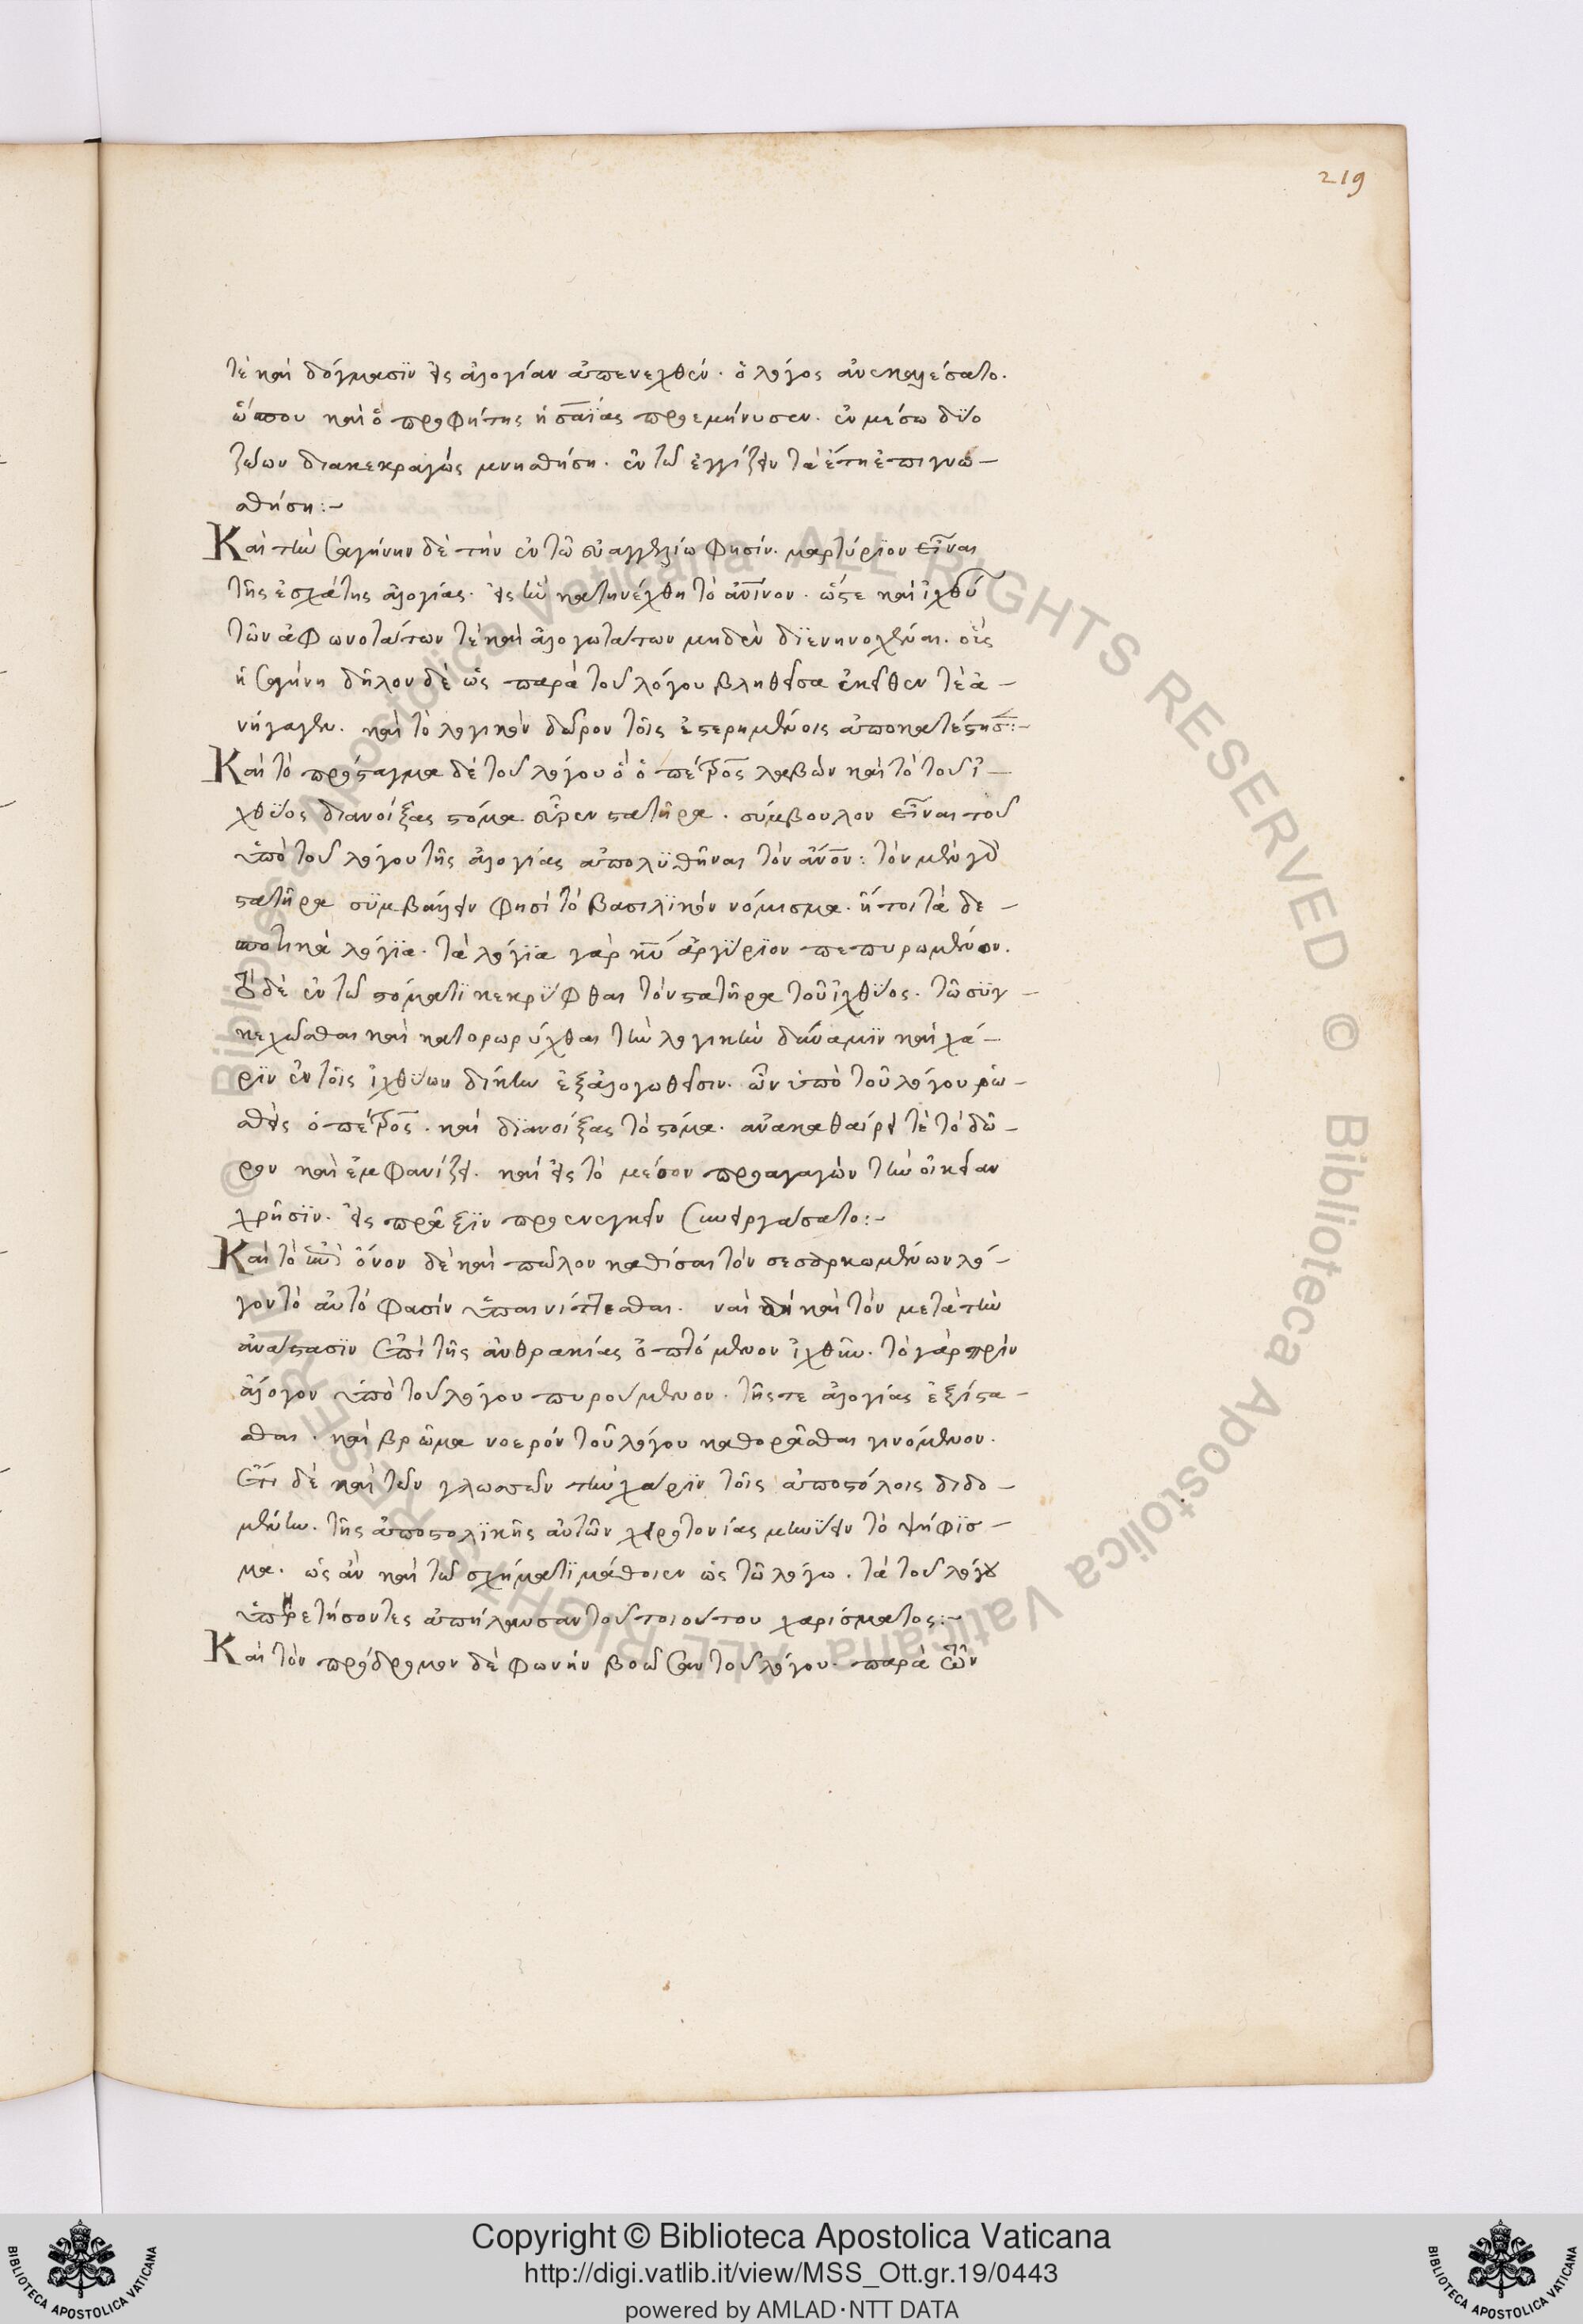 219
τὲ καὶ δόγμασϊν εἰς ἀλογίαν ἀπενεχθέν. ὁ λόγος ἀνεκαλέσατο.
ὥσπου καὶ ὁ προφήτης ἠσαΐας προεμήνυσεν. ἐν μέσω δύο
ζώων διακεκραγὼς μνησθήση. ἐν τῶ ἐγγίζειν τὰ ἔτη ἐπιγνω-
σθήση:-
Καὶ τὴν σαγήνην δὲ τὴν ἐν τῶ εὐαγγελίω φησίν. μαρτύριον εἶναι
τῆς ἐσχάτης ἀλογίας. εἰς ἣν κατηνέχθη τὸ ἀνινον. ὥστε καὶ ἰχθύ
τῶν ἀφωνοτάτων τὲ καὶ ἀλογωτάτων μηδὲν διενηνοχέναι. οἷς
ἡ σαγήνη δῆλον δὲ ὡς παρὰ τοῦ λόγου βληθεῖσα ἐκεῖθεν τὲ ἀ-
νήγαγεν. καὶ τὸ λογικὸν δῶρον τοῖς ἐστερημένοις ἀποκατέστησ:-
Καὶ τὸ πρόσταγμα δὲ τοῦ λόγου ὃ ὁ πέτρος λαβὼν καὶ τὸ τοῦ ἰ-
χθύος διανοίξας στόμα εὗρεν στατῆρα. σύμβουλον εἶναι τοῦ
ὑπὸ τοῦ λόγου τῆς ἀλογίας ἀπολυθῆναι τὸν ἀνον: τὸν μὲν γὰρ
στατῆρα συμβαλεῖν φησὶ τὸ βασιλικὸν νόμισμα. ἤτοι τὰ δε-
σποτικὰ λόγϊα. τὰ λόγϊα γὰρ κυ ἀργύριον πεπυρωμένον.
Τὸ δὲ ἐν τῶ στόματι κεκρύφθαι τὸν στατῆρα τοῦ ἰχθύος. τῶ συγ-
κεχῶσθαι καὶ κατορωρύχθαι τὴν λογικὴν δύναμιν καὶ χά-
ριν ἐν τοῖς ἰχθύων δίκην ἐξαλογωθεῖσιν. ὧν ὑπὸ τοῦ λόγου ῥω-
σθεὶς ὁ πέτρος. καὶ διανοίξας τὸ στόμα. ἀνακαθαίρει τὲ τὸ δῶ-
ρον καὶ ἐμφανίζει. καὶ εἰς τὸ μέσον προαγαγὼν τὴν οἰκείαν
χρῆσϊν. εἰς πρᾶξϊν προενεγκεῖν συνειργάσατο:-
Καὶ τὸ ἐπὶ ὄνον δὲ καὶ πῶλον καθίσαι τὸν σεσαρκωμένων λό-
γον τὸ αὐτό φασὶν ὑπαινίττεσθαι. ναὶ δὴ καὶ τὸν μετὰ τὴν
ἀνάστασιν ἐπὶ τῆς ἀνθρακίας ὀπτόμενον ἰχθῦν. τὸ γὰρ πρὶν
ἄλογον ὑπὸ τοῦ λόγου πυρούμενον. τῆς τε ἀλογίας ἐξίστα-
σθαι. καὶ βρῶμα νοερὸν τοῦ λόγου καθορᾶσθαι γινόμενον.
ἔτι δὲ καὶ τῶν γλωσσῶν τὴν χάριν τοῖς ἀποστόλοις διδο-
μένην. τῆς ἀποστολικῆς αὐτῶν χειροτονίας μηνύειν τὸ ψήφισ-
μα. ὡς ἂν καὶ τῶ σχήματι μάθοιεν ὡς τῶ λόγω. τὰ τοῦ λόγου
ὑπηρετήσοντες ἀπήλαυσαν τοῦ τοιούτου χαρίσματος:-
Καὶ τὸν πρόδρομον δὲ φωνὴν βοῶσαν τοῦ λόγου. παρὰ ὧν
© Biblioteca Apostolica Vaticana ALL RIGHTS RESERVED © Biblioteca Apostolica Vaticana ALL RIGHTS RESERVED
BIBLIOTECA APOSTOLICA VATICANA
Copyright © Biblioteca Apostolica Vaticana
http://digi.vatlib.it/view/MSS_Ott.gr.19/0443
powered by AMLAD·NTT DATA
BIBLIOTECA APOSTOLICA VATICANA